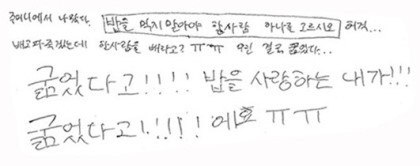 주머니에서 나왔다. 밥을 먹지말아야 할사람 하나를 고르시오 허걱..
배고파죽겠는데 한사람을 빼라고? ㅠㅠ 9인 결국 굶었다...
굶었다고!!!! 밥을 사랑하는 내가!!!
굶었다고!!!!! 에효 ㅠㅠ